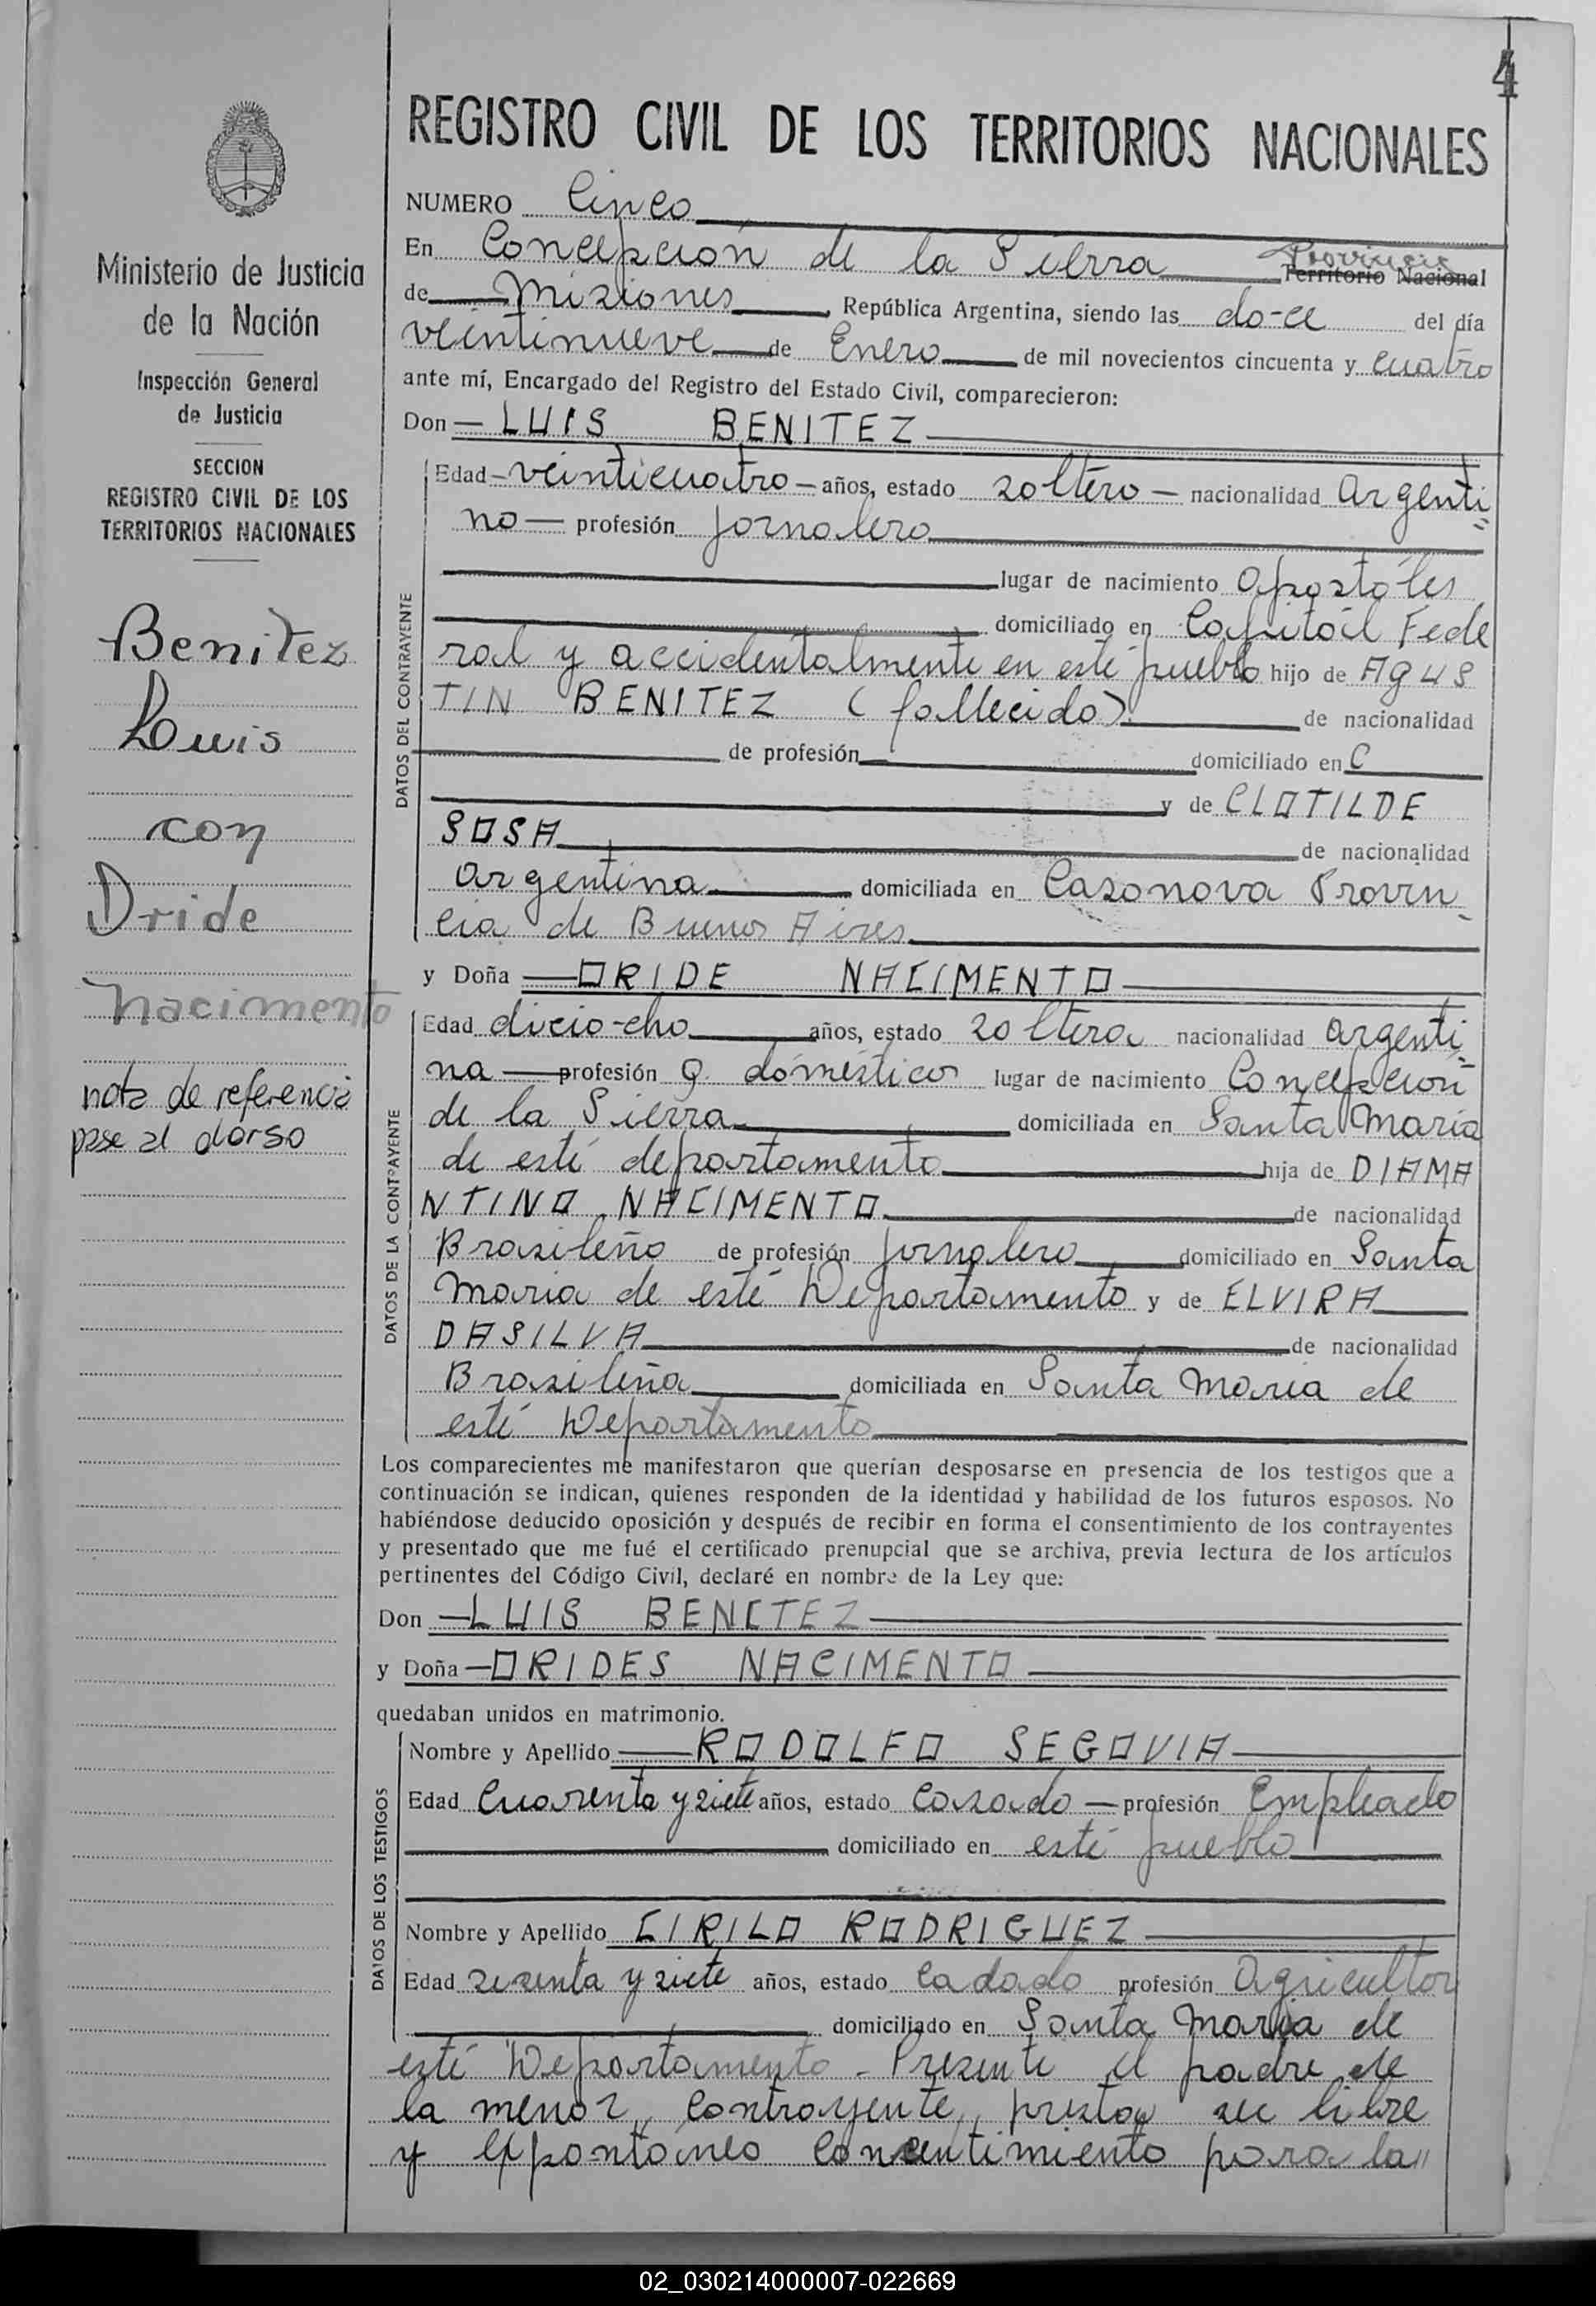 4
REGISTRO CIVIL DE LOS TERRITORIOS NACIONALES
Ministerio de Justicia
de la Nación
Inspección General
de Justicia
SECCION
REGISTRO CIVIL DE LOS
TERRITORIOS NACIONALES
Benitez
Luis
con
Oride
Nacimento
nota de referencia
pase al dorso
NUMERO Cinco
En Concepción de la Sierra Provincia Territorio Nacional
de Misiones, República Argentina, siendo las do-ce del día
veintinueve de Enero de mil novecientos cincuenta y cuatro
ante mí, Encargado del Registro del Estado Civil, comparecieron:
Don LUIS BENITEZ
DATOS DEL CONTRAYENTE
Edad veinticuatro años, estado soltero nacionalidad Argenti=
no profesión jornalero
lugar de nacimiento Apostóles
domiciliado en Capitál Fede
ral y accidentalmente en esté pueblo hijo de AGUS
TIN BENITEZ (fallecido). de nacionalidad
de profesión domiciliado en C
y de CLOTILDE
SOSA de nacionalidad
Argentina domiciliada en Casonova Provin-
cia de Buenos Aires
y Doña ORIDE NACIMENTO
DATOS DE LA CONTRAYENTE
Edad diecio-cho años, estado soltera nacionalidad argenti=
na profesión Q. domésticos lugar de nacimiento Concepción
de la Sierra domiciliada en Santa Maria
de esté departamento hija de DIAMA
NTINO NACIMENTO de nacionalidad
Brasileño de profesión jornalero domiciliado en Santa
Maria de esté Departamento y de ELVIRA
DASILVA de nacionalidad
Brasileña domiciliada en Santa Maria de
esté Departamento
Los comparecientes me manifestaron que querían desposarse en presencia de los testigos que a
continuación se indican, quienes responden de la identidad y habilidad de los futuros esposos. No
habiéndose deducido oposición y después de recibir en forma el consentimiento de los contrayentes
y presentado que me fué el certificado prenupcial que se archiva, previa lectura de los artículos
pertinentes del Código Civil, declaré en nombre de la Ley que:
Don LUIS BENITEZ
y Doña ORIDES NACIMENTO
quedaban unidos en matrimonio.
DATOS DE LOS TESTIGOS
Nombre y Apellido RODOLFO SEGOVIA
Edad Cuarenta y siete años, estado Casado profesión Empleado
domiciliado en esté pueblo
Nombre y Apellido CIRILO RODRIGUEZ
Edad sesenta y siete años, estado Cadado profesión Agricultor
domiciliado en Santa Maria de
esté Departamento - Presente el padre de
la menor, contrayente, presta su libre
y expontáneo consentimiento para la"
02_030214000007-022669